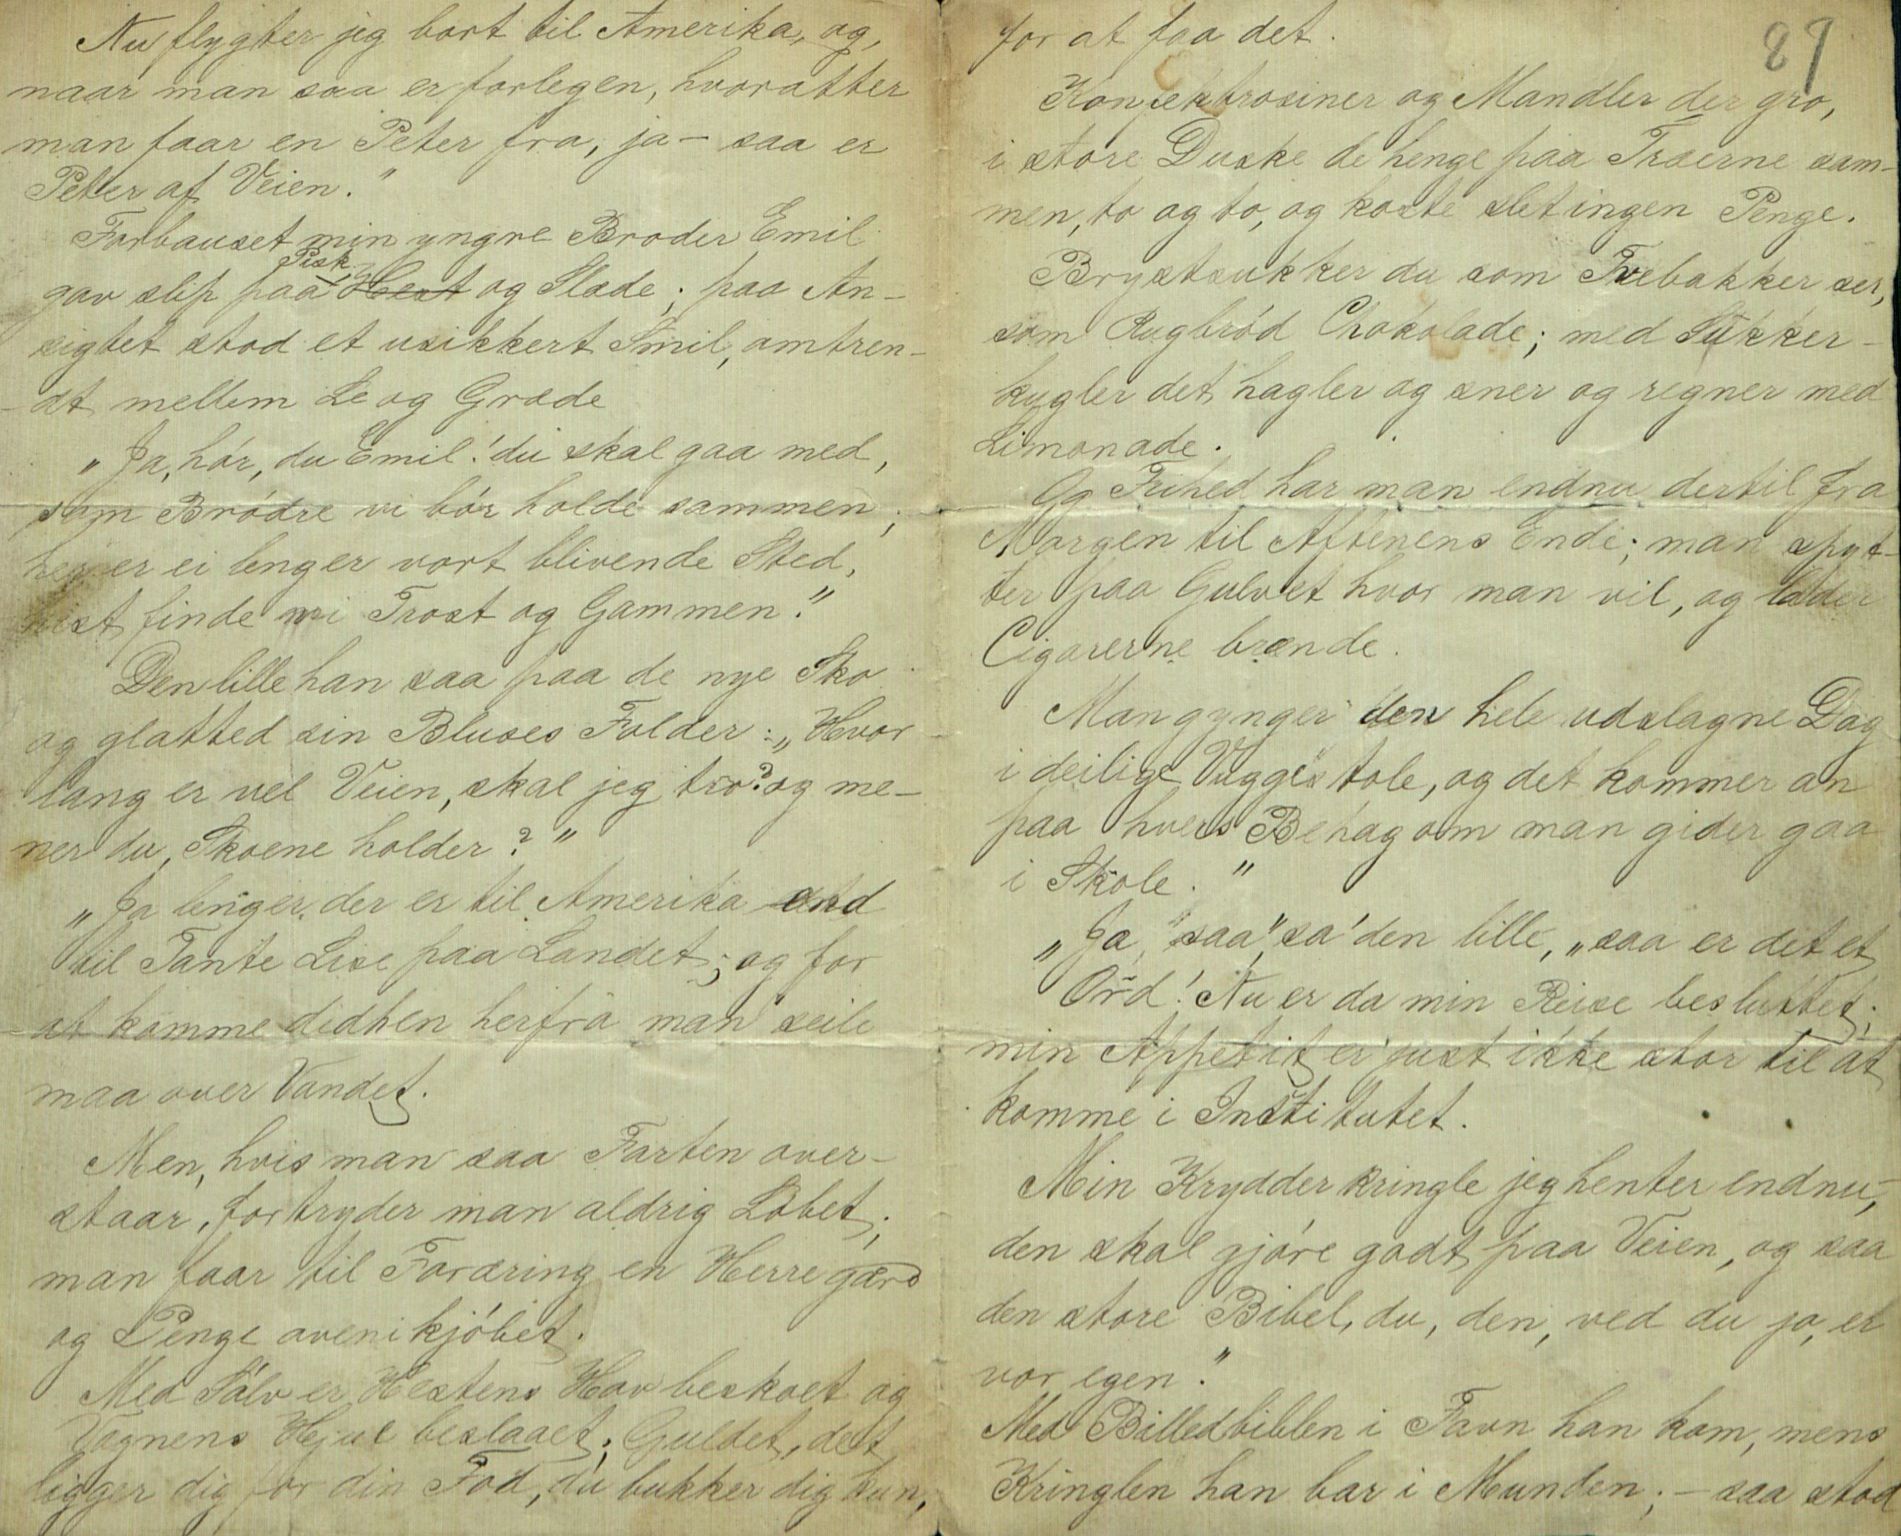 Nu flygter jeg bort til Amerika, og,
naar man saa er forlegen, hvoratter
man faar en Peter fra, ja – saa er
Peter af Veien."
Forbauset min yngre Broder Emil
Pisk
gav slip paa Hest og Slæde; paa An-
sigtet stod et usikkert Smil, omtren-
dt mellem Le og Græde
„Ja, hór, du Emil! du skal gaa med,
som Brødre vi bór holde sammen;
her er ei lenger vort blivende Sted,
hist finde vi Trost og Gammen."
Den lille han saa paa de nye Sko
og glatted sin Bluses Folder: „Hvor
lang er vel Veien, skal jeg tro? og me-
ner du, Skoene holder?"
„Ja lenger der er til Amerika end
til Tante Lise paa Landet; og for
at komme didhen herfra man seile
maa over Vandet.
Men, hvis man saa Farten over-
staar, fortryder man aldrig Løbet;
man faar til Foræring en Herregard
og Penge ovenikjóbet.
Med Sólv er Hestens Hov beskoet og
Vognens Hjul beslaaet; Guldet, det
ligger dig for din Fod, du bukker dig kun,
89
for at faa det.
Konfektrosiner og Mandler der gro,
i store Duske de henge paa Træerne sam-
men, to og to, og koste slet ingen Penge.
Brystsukker du som Tvebakker ser,
som Rugbród Chokolade; med Sukker-
kugler det hagler og sner og regner med
Limonade.
Og Frihed har man endnu dertil fra
Morgen til Aftenens Ende; man spyt-
ter paa Gulvet hvor man vil, og lader
Cigarerne brænde.
Man gynger den hele udslagne Dag
i deilige Vuggestole, og det kommer an
paa hvers Behag om man gider gaa
i Skole."
„Ja, "saa," sa' den lille, „saa er det et
Ord! Nu er da min Reise besluttet;
min Appetit er just ikke stor til at
komme i Institutet.
Min Krydderkringle jeg henter endnu,
den skal gjóre godt paa Veien, og saa
den store Bibel, du, den, ved du jo, er
vor egen."
Med Billedbiblen i Favn han kom, mens
Kringlen han bar i Munden; – saa stod